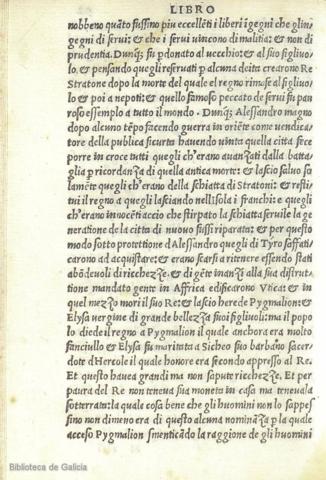 LIBRO
nobbeno quãto fussino piu eccellẽti i liberi igegni che glin
gegni di serui: & che i serui uincono di malitia: & non di
prudentia. Dunq; fu pdonato al uecchio: & al suo figliuo
lo. & pensando quegli reseruati p alcuna deita crearono Re
Stratone dopo la morte del quale el regno rimase al figliuo
lo & poi a nepoti: & quello famoso peccato de serui fu pau
roso essemplo a tutto il mondo. Dunq; Alessandro magno
dopo alcuno tẽpo facendo guerra in oriẽte come uendica
tore della publica sicurta hauendo uinta quella citta fece
porre in croce tutti quegli ch'erano auanzati dalla batta
glia p ricordanza di quella antica morte: & lascio saluo sa
lamẽte quegli ch'erano della schiatta di Stratoni: & resti
tui il regno a quegli lasciando nell'isola i franchi: & quegli
ch'erano innocẽti accio che stirpato la schiatta seruile la ge
neratione de la citta di nuouo fussi riparata: & per questo
modo sotto protettione d'Alessandro quegli di Tyro saffati
carono ad acquistare: & erano scarsi a ritenere essendo stati
abõdeuoli di ricchezze. & di gẽte inanzi alla sua distrut
tione mandato gente in Affrica edificarono Vtica: & in
quel mezzo mori il suo Re: & lascio herede Pygmalion: &
Elysa uergine di grande bellezza suoi figliuoli: ma il popo
lo diede il regno a Pygmalion il quale anchora era molto
fanciullo & Elysa fu maritata a Sicheo suo barbano sacer-
dote d'Hercole il quale honore era secondo appresso al Re.
Et questo hauea grandi ma non sapute ricchezze. Et per
paura del Re non teneua sua moneta in casa ma teneuala
sotterrata: la quale cosa bene che gli huomini non lo sappes
sino non dimeno era di questo alcuna nominãza p la quale
acceso Pygmalion smenticãdo la raggione de gli huomini
Biblioteca de Galicia